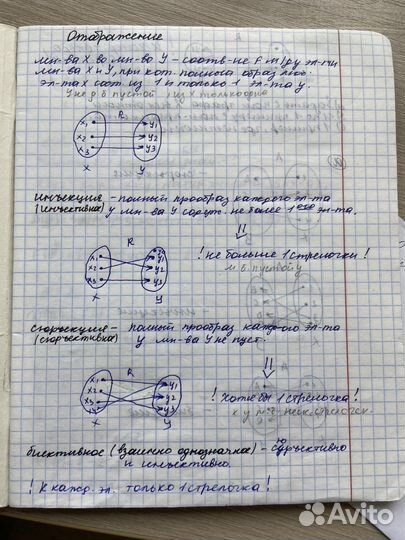 Отображение
мн-ва X во мн-во Y – соотв-ие R м/ру эл-ми
мн-ва X и Y, при кот. полный образ люб.
эл-та x сост. из 1 и только 1 эл-та y.
y не д б пустой из x только одна
R
x1 y1
x2 y2
x3 y3
X Y
инъекция – полный прообраз каждого эл-та
(инъективное) y мн-ва Y содерж. не более 1 эл-та.
R
x1 y1
x2 y2
x3 y3
X Y
! не больше 1 стрелочки !
м б пустой y
сюръекция – полный прообраз каждого эл-та
(сюръективное) y мн-ва Y не пуст.
R
x1 y1
x2 y2
x3 y3
X Y
! Хотя бы 1 стрелочка !
к y м б неск. стрелочек
биективное (взаимно однозначное) – сюръективно
и инъективно.
! К кажд. эл. только 1 стрелочка !
Avito